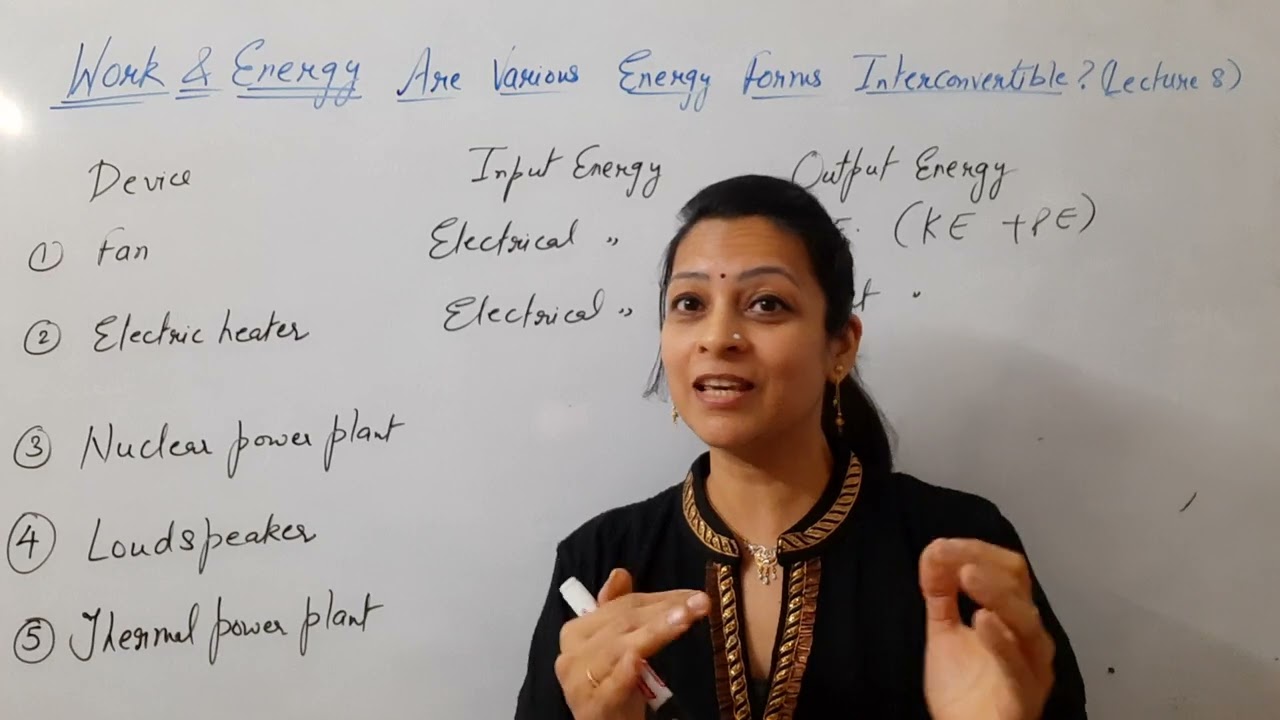 Work & Energy Are Various Energy forms Interconvertible? (Lecture 8)
Device Input Energy Output Energy
① Fan Electrical " (KE + PE)
② Electric heater Electrical "
③ Nuclear power plant
④ Loudspeaker
⑤ Thermal power plant